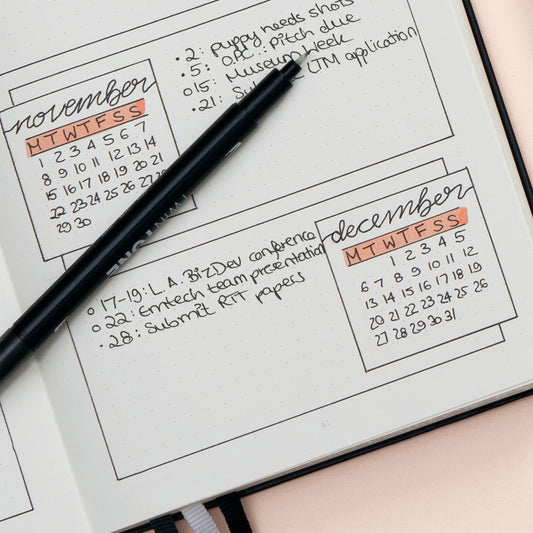 november
M T W T F S S
1 2 3 4 5 6 7
8 9 10 11 12 13 14
15 16 17 18 19 20 21
22 23 24 25 26 27
29 30
• 2: puppy needs shots
• 5: O.P.C.: Pitch due
o 15: Museum Week
• 21: LTM application
december
M T W T F S S
1 2 3 4 5
6 7 8 9 10 11 12
13 14 15 16 17 18 19
20 21 22 23 24 25 26
27 28 29 30 31
o 17-19: L.A. BizDev conference
o 22: Emtech team presentation
• 28: Submit RTT papers
61